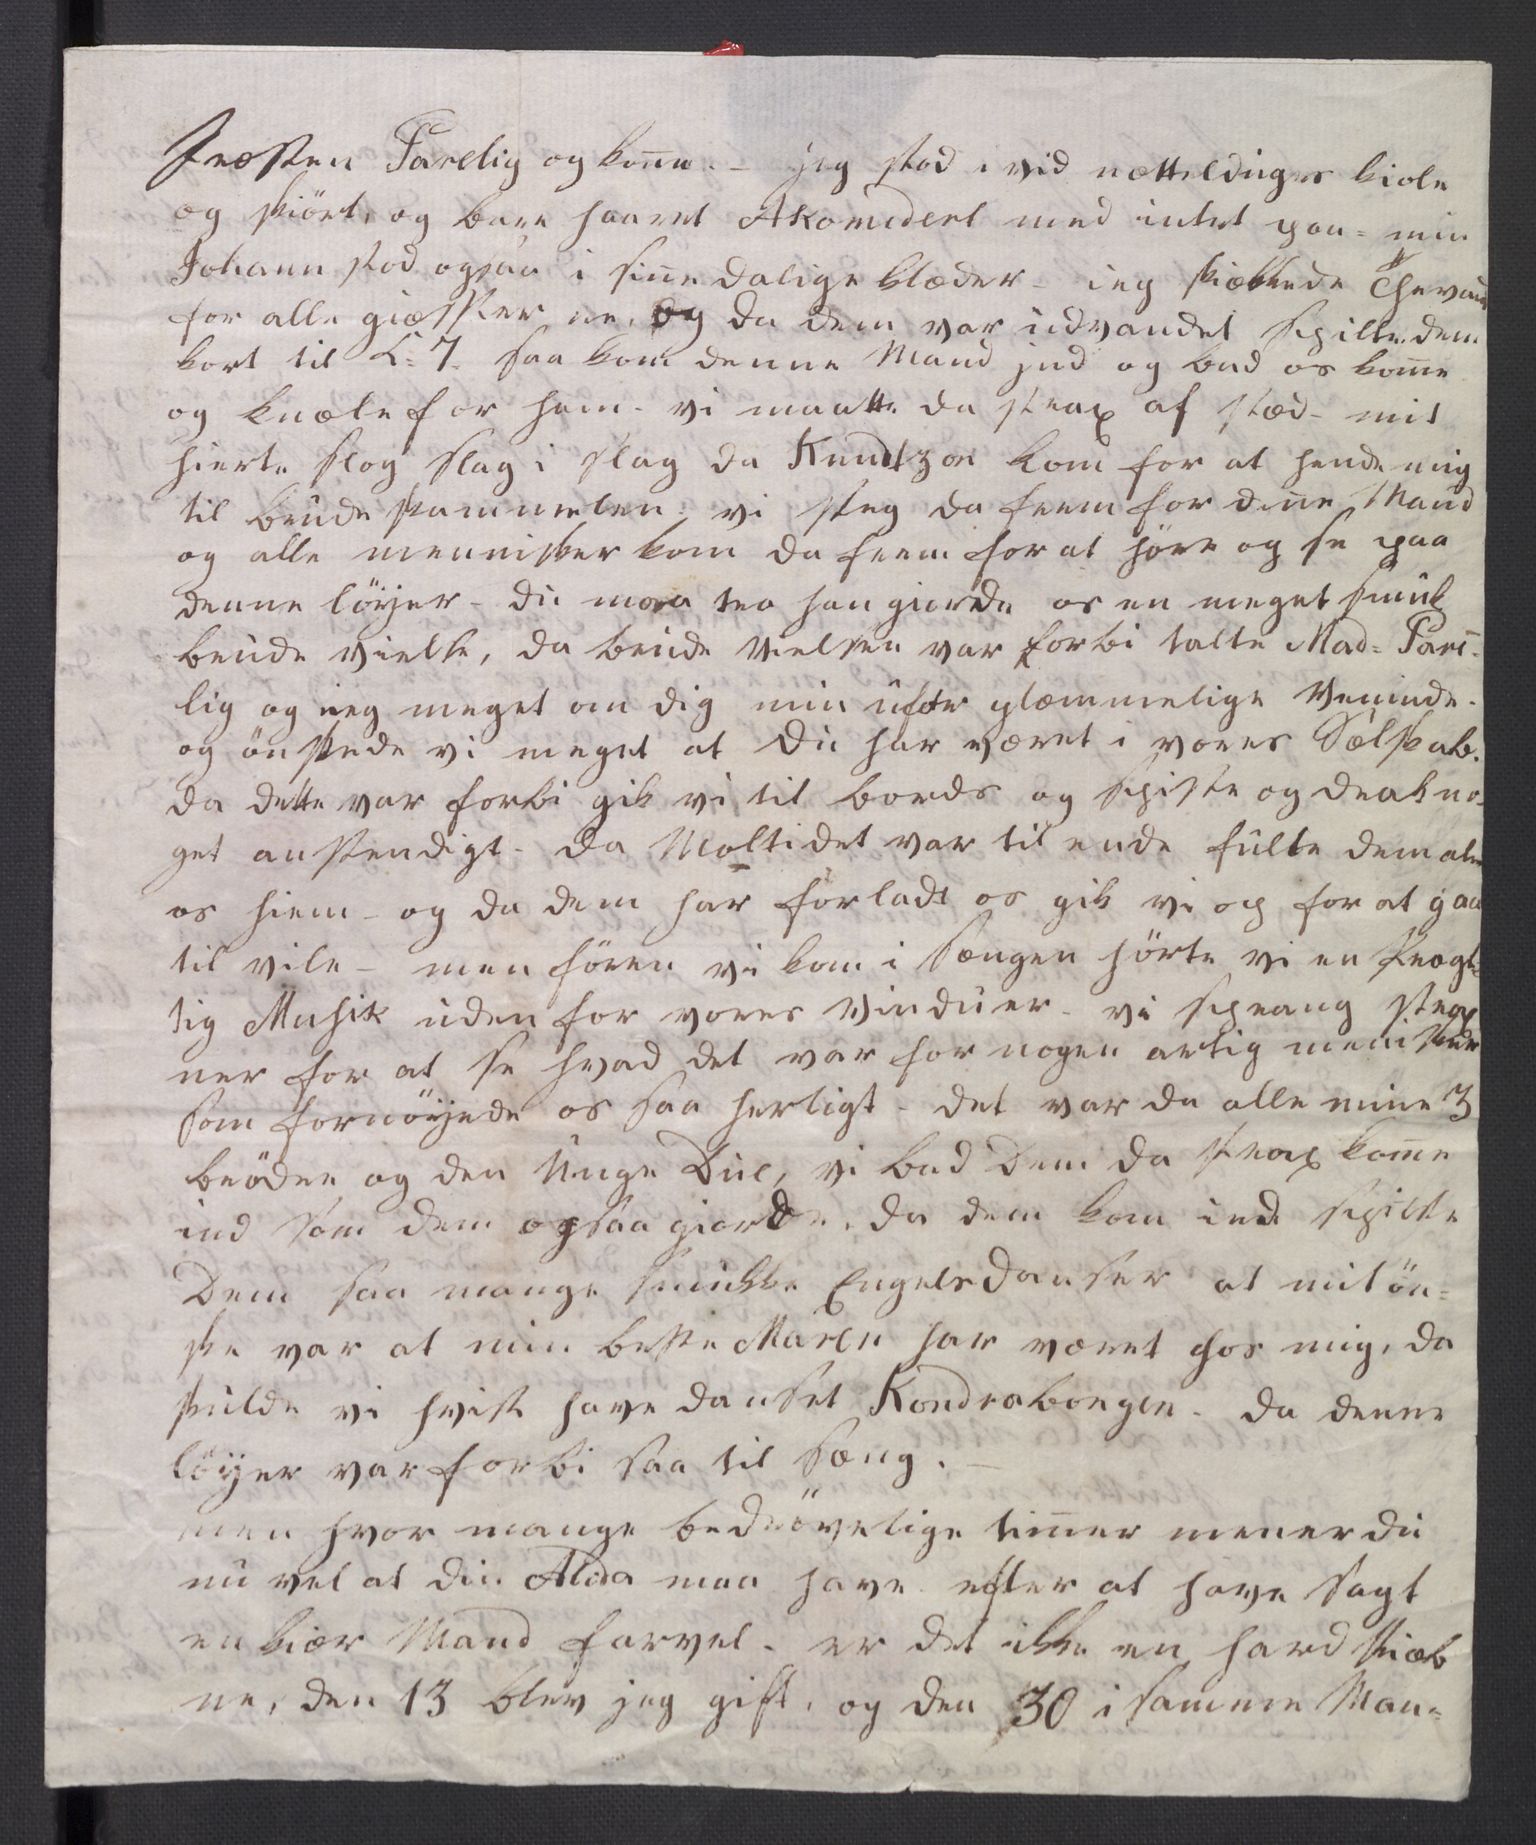 Præsten Parelig og kone. – jeg stod i vid nætteldugs kiole
og skiört, og bare haaret Akomidert med intet paa – min
Johann stod ogsaa i sine dalige klæder – ieg skiænkede Thevand
for alle giæsterne, og da dem var udvandet spilte dem
kort til K: 7. saa kom denne Mand ind og bad os kome
og knæle for ham – vi maatte da strax af stæd – mit
hierte slog slag i slag da Knudtzon kom for at hende mig
til brude skammelen, vi steg da frem for dene Mand
og alle mennisker kom da frem for at höre og se paa
denne löyer – du maa tro han giorde os en meget smuk
brude vielse, da brude vielsen var forbi talte Mad: Pare-
lig og ieg meget om dig min ufor glæmmelige Veninde –
og önskede vi meget at du har været i vores Sælskab.
da dette var forbi gik vi til bords og spiste og drak no-
get anstendigt – da Moltidet var til ende fulte dem alle
os hiem – og da dem har forladt os gik vi op for at gaa
til vile – men fören vi kom i sængen hörte vi en Prægt-
tig Musik uden for vores Vinduer – vi sprang strax
ner for at se hvad det var for nogen artig menisker
som fornöyede os saa herligt – det var da alle mine 3
brödre og den Unge Due, vi bad Dem da strax kome
ind som dem ogsaa giorde, da dem kom ind spilte
Dem saa mange smukke Engelsdanser at mit ön-
ske var at min beste Maren har været hos mig, da
skulde vi hvist have danset Kondrabongen – da denne
löyer var forbi saa til sæng. –
men hvor mange bedrövelige timer mener du
nu vel at din Alida maa have efter at have sagt
en kiær Mand farvel – er det ikke en hard skiæb
ne, den 13 blev jeg gift, og den 30 i samme Maa-